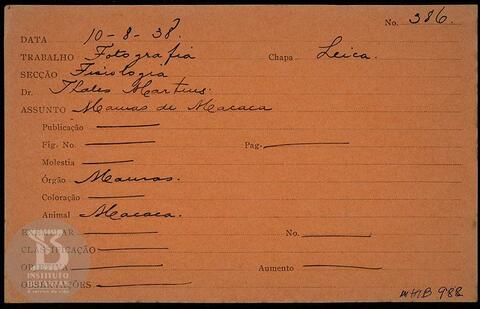 No. 386.
DATA 10-8-38
TRABALHO Fotografia Chapa Leica.
SECÇÃO Fisiologia
Dr. Thales Martins.
ASSUNTO Mamas de Macaca
Publicação
Fig. No Pag.
Molestia
Órgão Mamas.
Coloração
Animal Macaca.
EXEMPLAR No.
CLASSIFICAÇÃO
OBJETIVA Aumento
OBSERVAÇÕES
INSTITUTO
BIOLOGICAL
MHIB 988